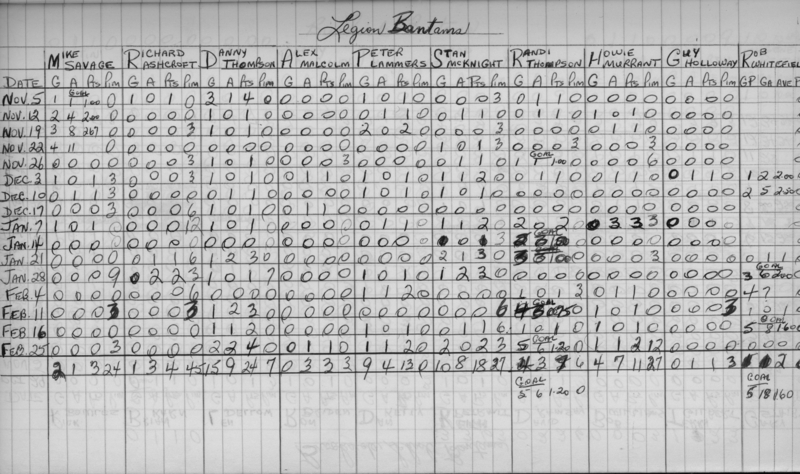 Legion Bantams
MIKE SAVAGE RICHARD ASHCROFT DANNY THOMPSON ALEX MALCOLM PETER LAMMERS STAN MCKNIGHT RANDI THOMPSON HOWIE MURRANT GUY HOLLOWAY ROB WHITEFIEL
DATE G A Pts Pim G A Pts Pim G A Pts Pim G A Pts Pim G A Pts Pim G A Pts Pim G A Pts Pim G A Pts Pim G A Pts Pim GP GA AVE P
NOV. 5 1 1 GOAL 1.00 0 1 0 1 0 3 1 4 0 0 0 0 0 1 0 1 0 0 0 0 3 0 1 1 0 0 0 0 0 0 0 0 0
NOV. 12 2 4 200 0 0 0 0 0 1 0 1 0 0 0 0 0 0 1 1 0 1 0 1 0 0 1 1 0 1 0 1 0 0 0 0 0
NOV. 19 3 8 267 0 0 0 3 1 0 1 0 0 0 0 0 2 0 2 0 0 0 0 3 0 0 0 0 0 1 1 0 0 0 0 0
NOV. 22 4 11 0 0 0 0 0 0 0 0 0 0 0 0 0 0 0 0 0 1 0 1 3 0 0 0 3 0 0 0 3 0 0 0 0
NOV. 26 0 0 0 0 0 0 0 3 1 0 1 0 0 0 0 3 0 0 0 0 0 1 1 0 1 GOAL 1.00 0 0 0 6 0 0 0 0
DEC. 3 1 0 1 3 0 0 0 3 1 0 1 0 0 1 1 0 1 0 1 0 1 1 2 0 0 1 1 0 0 1 1 0 0 1 1 0 1 2 200
DEC. 10 0 1 1 3 0 0 0 0 0 1 1 0 0 0 0 0 1 0 1 0 1 0 1 0 0 0 0 0 0 0 0 0 0 0 0 0 2 5 250
DEC. 17 0 0 0 3 0 0 0 6 1 0 1 0 0 1 1 0 0 0 0 0 0 0 0 0 0 0 0 0 0 0 0 0 0 0 0 0
JAN. 7 1 0 1 0 0 0 0 12 1 0 1 0 0 0 0 0 0 1 1 0 1 1 2 0 2 0 2 0 0 3 3 3 0 0 0 0
JAN. 14 0 0 0 0 0 0 0 0 0 0 0 0 0 0 0 0 0 0 0 0 0 3 0 0 0 0 0 0 0 0
JAN. 21 0 0 0 0 0 1 1 6 1 2 3 0 0 0 0 0 0 0 0 0 2 1 3 0 0 0 0 3 0 0 0 0 0 1 1
JAN. 28 0 0 0 9 0 2 2 3 1 0 1 7 0 0 0 0 1 0 1 0 1 2 3 0 0 0 0 0 0 0 0 0 0 0 0 0 GOAL 3 6 200
FEB. 4 0 0 0 0 0 0 0 6 0 0 0 0 0 0 0 0 1 1 2 0 0 0 0 0 1 0 1 3 0 1 1 0 0 0 0 0 4 7
FEB. 11 0 0 0 3 0 0 0 3 1 2 3 0 0 0 0 0 0 0 0 0 0 0 0 6 GOAL 4 3 075 0 1 0 1 0 0 0 0 3 1 0 1
FEB. 16 0 0 0 0 0 0 0 0 1 1 2 0 0 0 0 0 1 0 1 0 0 1 1 6 1 0 1 0 1 0 1 0 0 0 0 0 GOAL 5 8 160
FEB. 25 0 0 0 3 0 0 0 0 2 2 4 0 0 1 1 0 1 1 2 0 2 0 2 3 GOAL 5 6 1.20 0 1 1 2 12 0 0 0 0
2 1 3 24 1 3 4 45 15 9 24 7 0 3 3 3 9 4 13 0 10 8 18 27 4 3 6 4 7 11 27 0 1 1 3 2
GOAL 5 6 1.20 0 GOAL 5 18 160